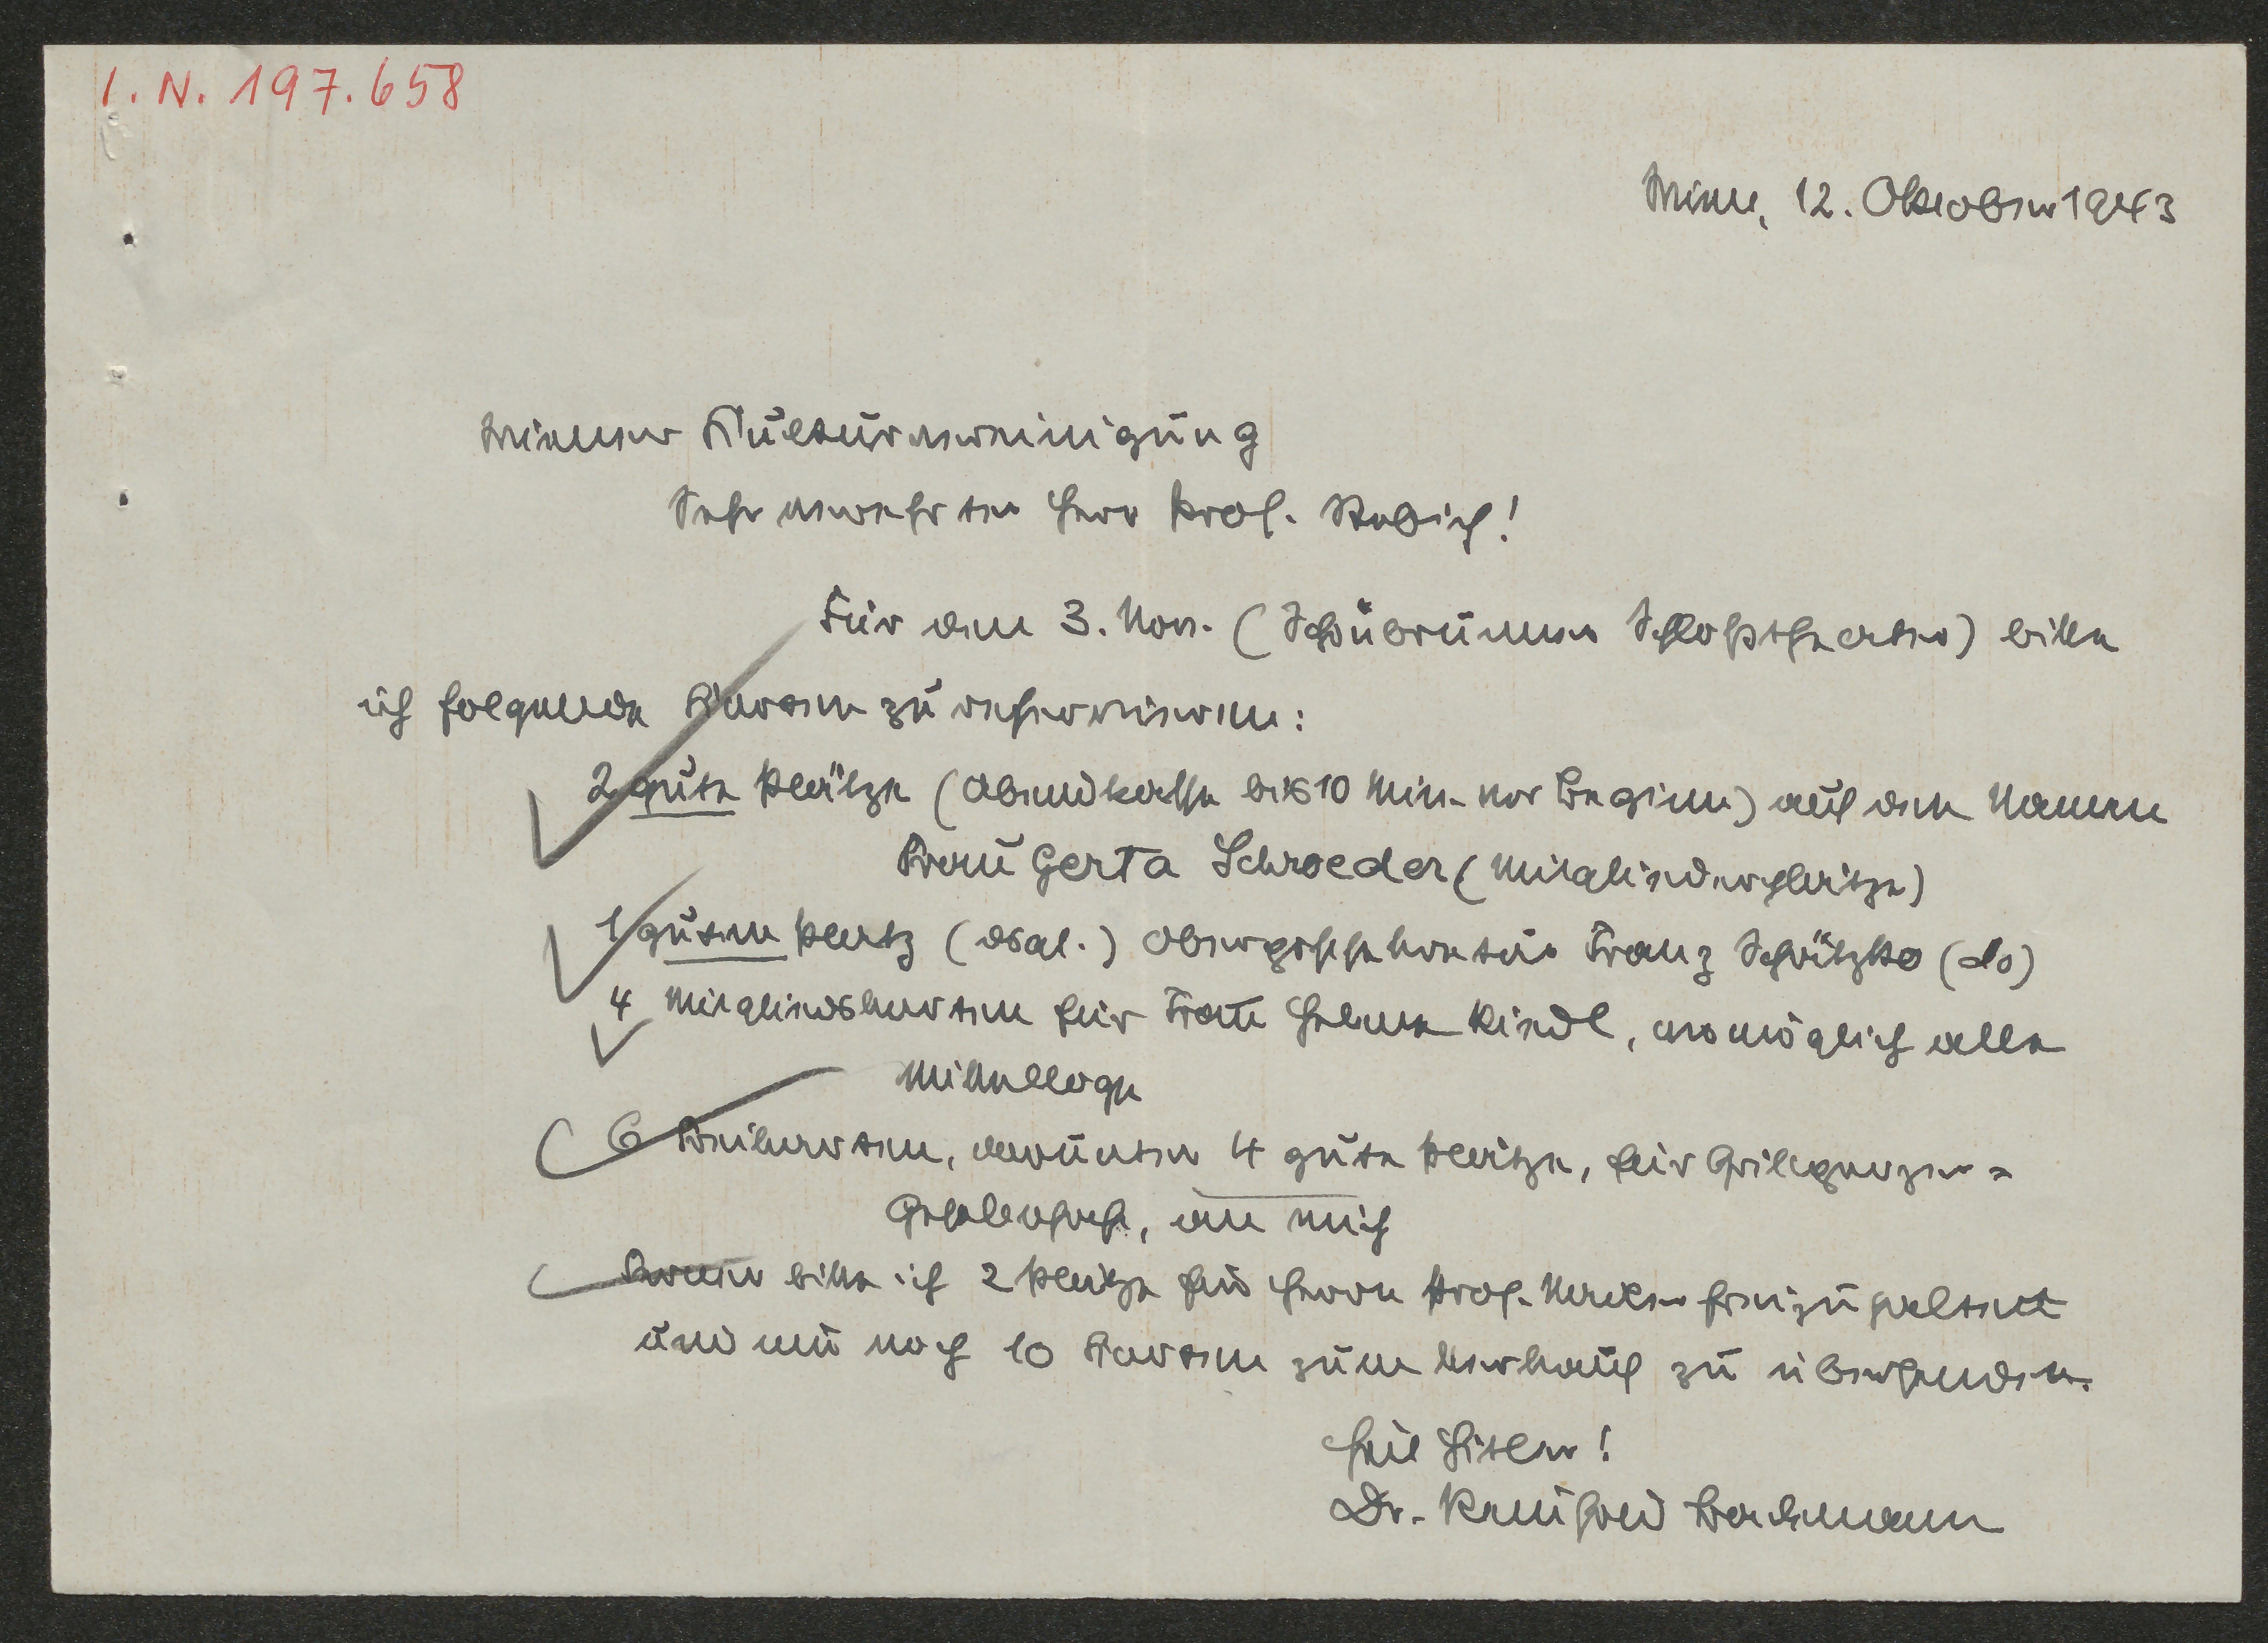 I.N. 197.658
Wien, 12. Oktober 1943
Wiener Kulturvereinigung
Sehr verehrter Herr Prof. Rebich!
Für den 3. Nov. (Schönbrunner Schloßtheater) bitte
ich folgende Karten zu reservieren:
2 gute Plätze (Abendkasse bis 10 Min. vor Beginn) auf den Namen
Frau Gerta Schroeder (Mitgliederplätze)
1 guten Platz (dsgl.) Franz (do)
4 Mitgliedskarten für Frau Helene Riedl, womöglich alle
Mittelloge
6 Freikarten, darunter 4 gute Plätze, für Grillparzer-
Gesellschaft, an mich
Ferner bitte ich 2 Plätze für Herrn Prof. freizuhalten
und mir noch 10 Karten zum Verkauf zu übersenden.
Heil Hitler!
Dr. Reinhold Backmann